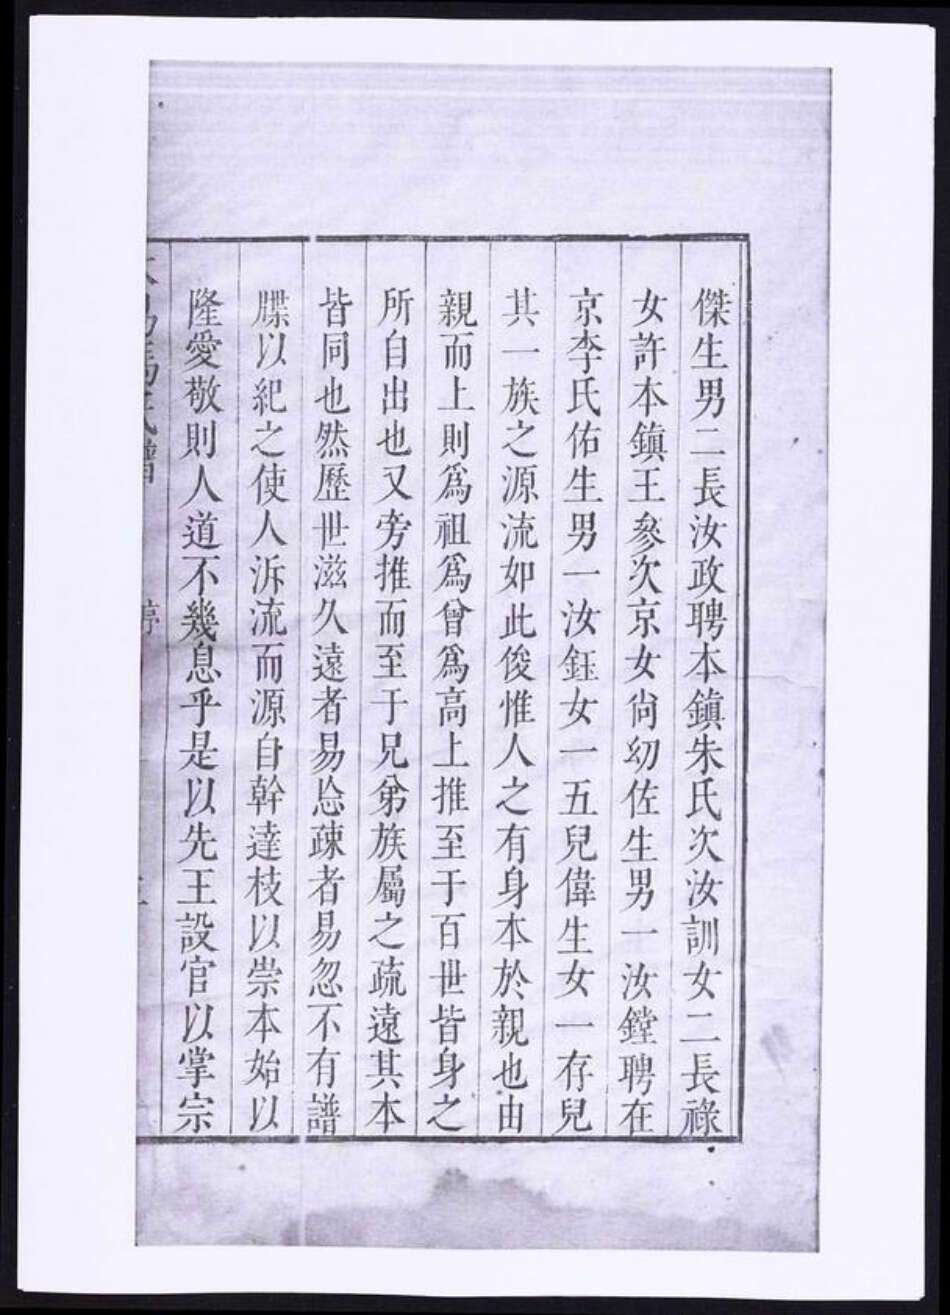 傑生男二長汝政聘本鎮朱氏次汝訓女二長祿
女許本鎮王參次京女尙幼佐生男一汝鏜聘在
京李氏佑生男一汝鈺女一五兒偉生女一存兒
其一族之源流如此俊惟人之有身本於親也由
親而上則爲祖爲曾爲高上推至于百世皆身之
所自出也又旁推而至于兄弟族屬之疏遠其本
皆同也然歷世滋久遠者易忘疎者易忽不有譜
牒以紀之使人泝流而源自幹達枝以崇本始以
隆愛敬則人道不幾息乎是以先王設官以掌宗
馬氏譜